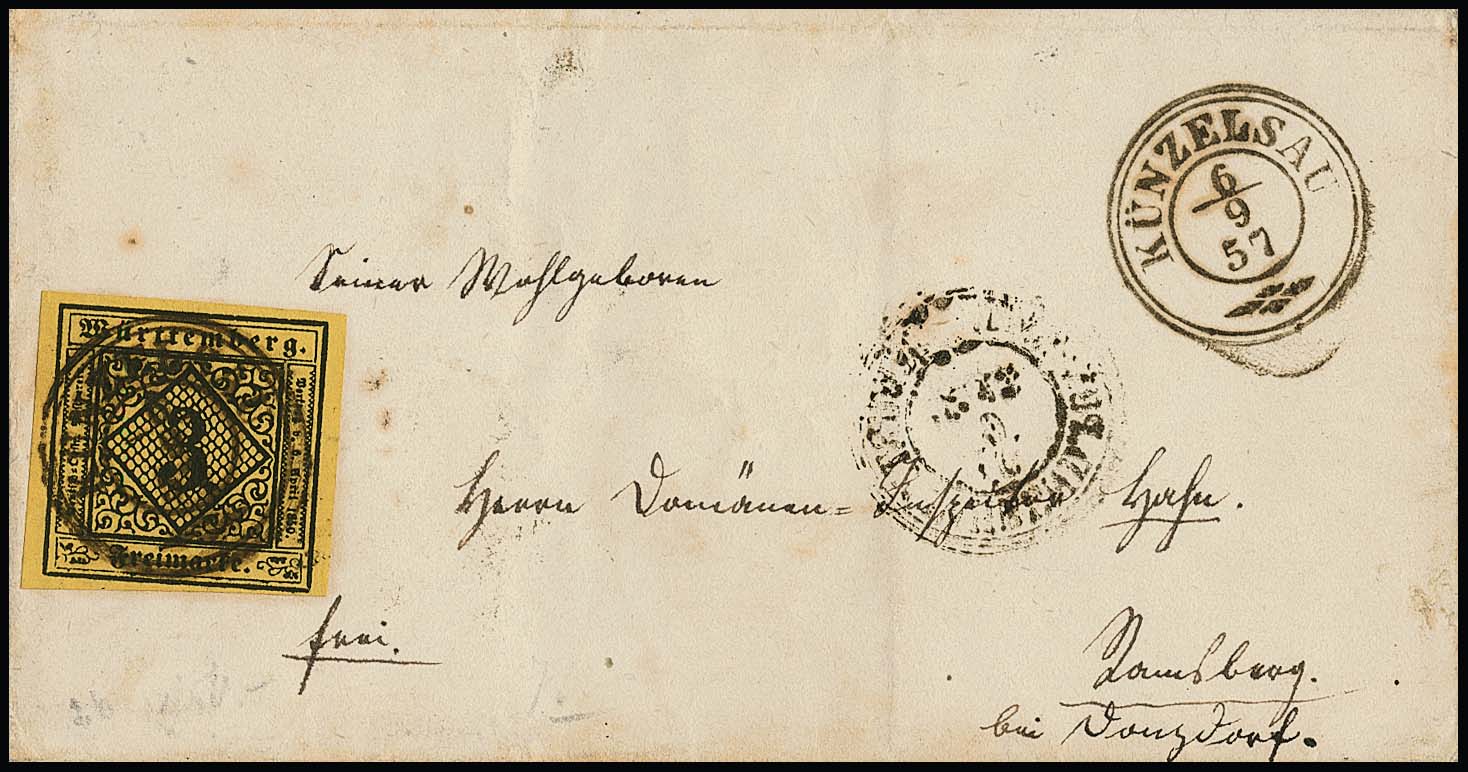 KÜNZELSAU
6/9
57
Seiner Wohlgeboren
Württemberg.
3
Freimarke.
Herrn Domänen=Inspektor Hahn.
frei.
Ramsberg.
bei Donzdorf.